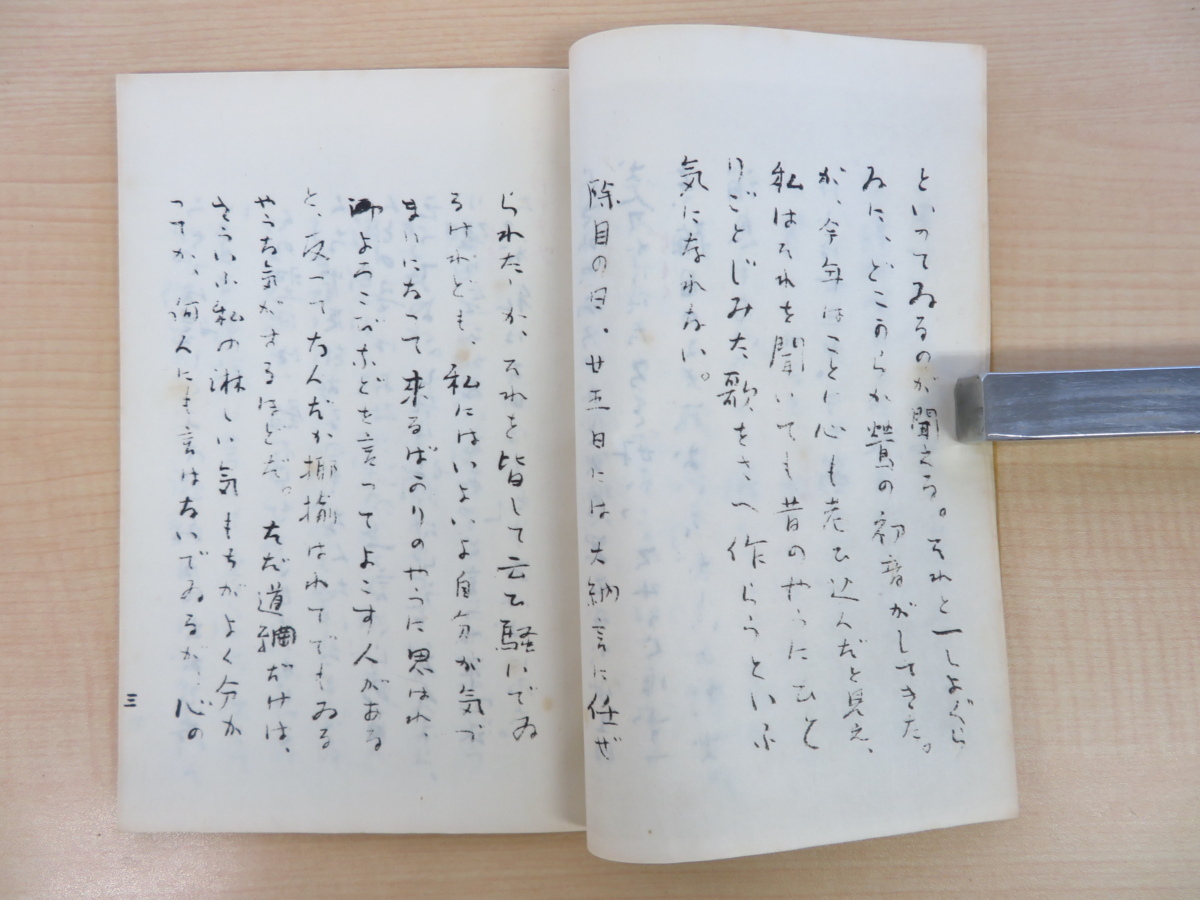 といつてゐるのが聞える。それと一しよぐら
ゐに、どこからか鶯の初音がしてきた。
が、今年はことに心も老ひ込んだと見え、
私はそれを聞いても昔のやうにひと
りごとじみた歌をさへ作らうといふ
気になれない。
除目の日、廿五日には大納言に任ぜ
られた、が、それを皆して云ひ騒いでゐ
るけれども、私にはいよいよ自分が気づ
まりになつて来るばかりのやうに思はれ、
よろこびなどを言つてよこす人がある
と、反つてなんだか揶揄はれてでもゐる
やうな気がするほどだ。ただ道綱だけは、
さういふ私の淋しい気もちがよく分か
つてか、何人にも言はないでゐるが、心の
三